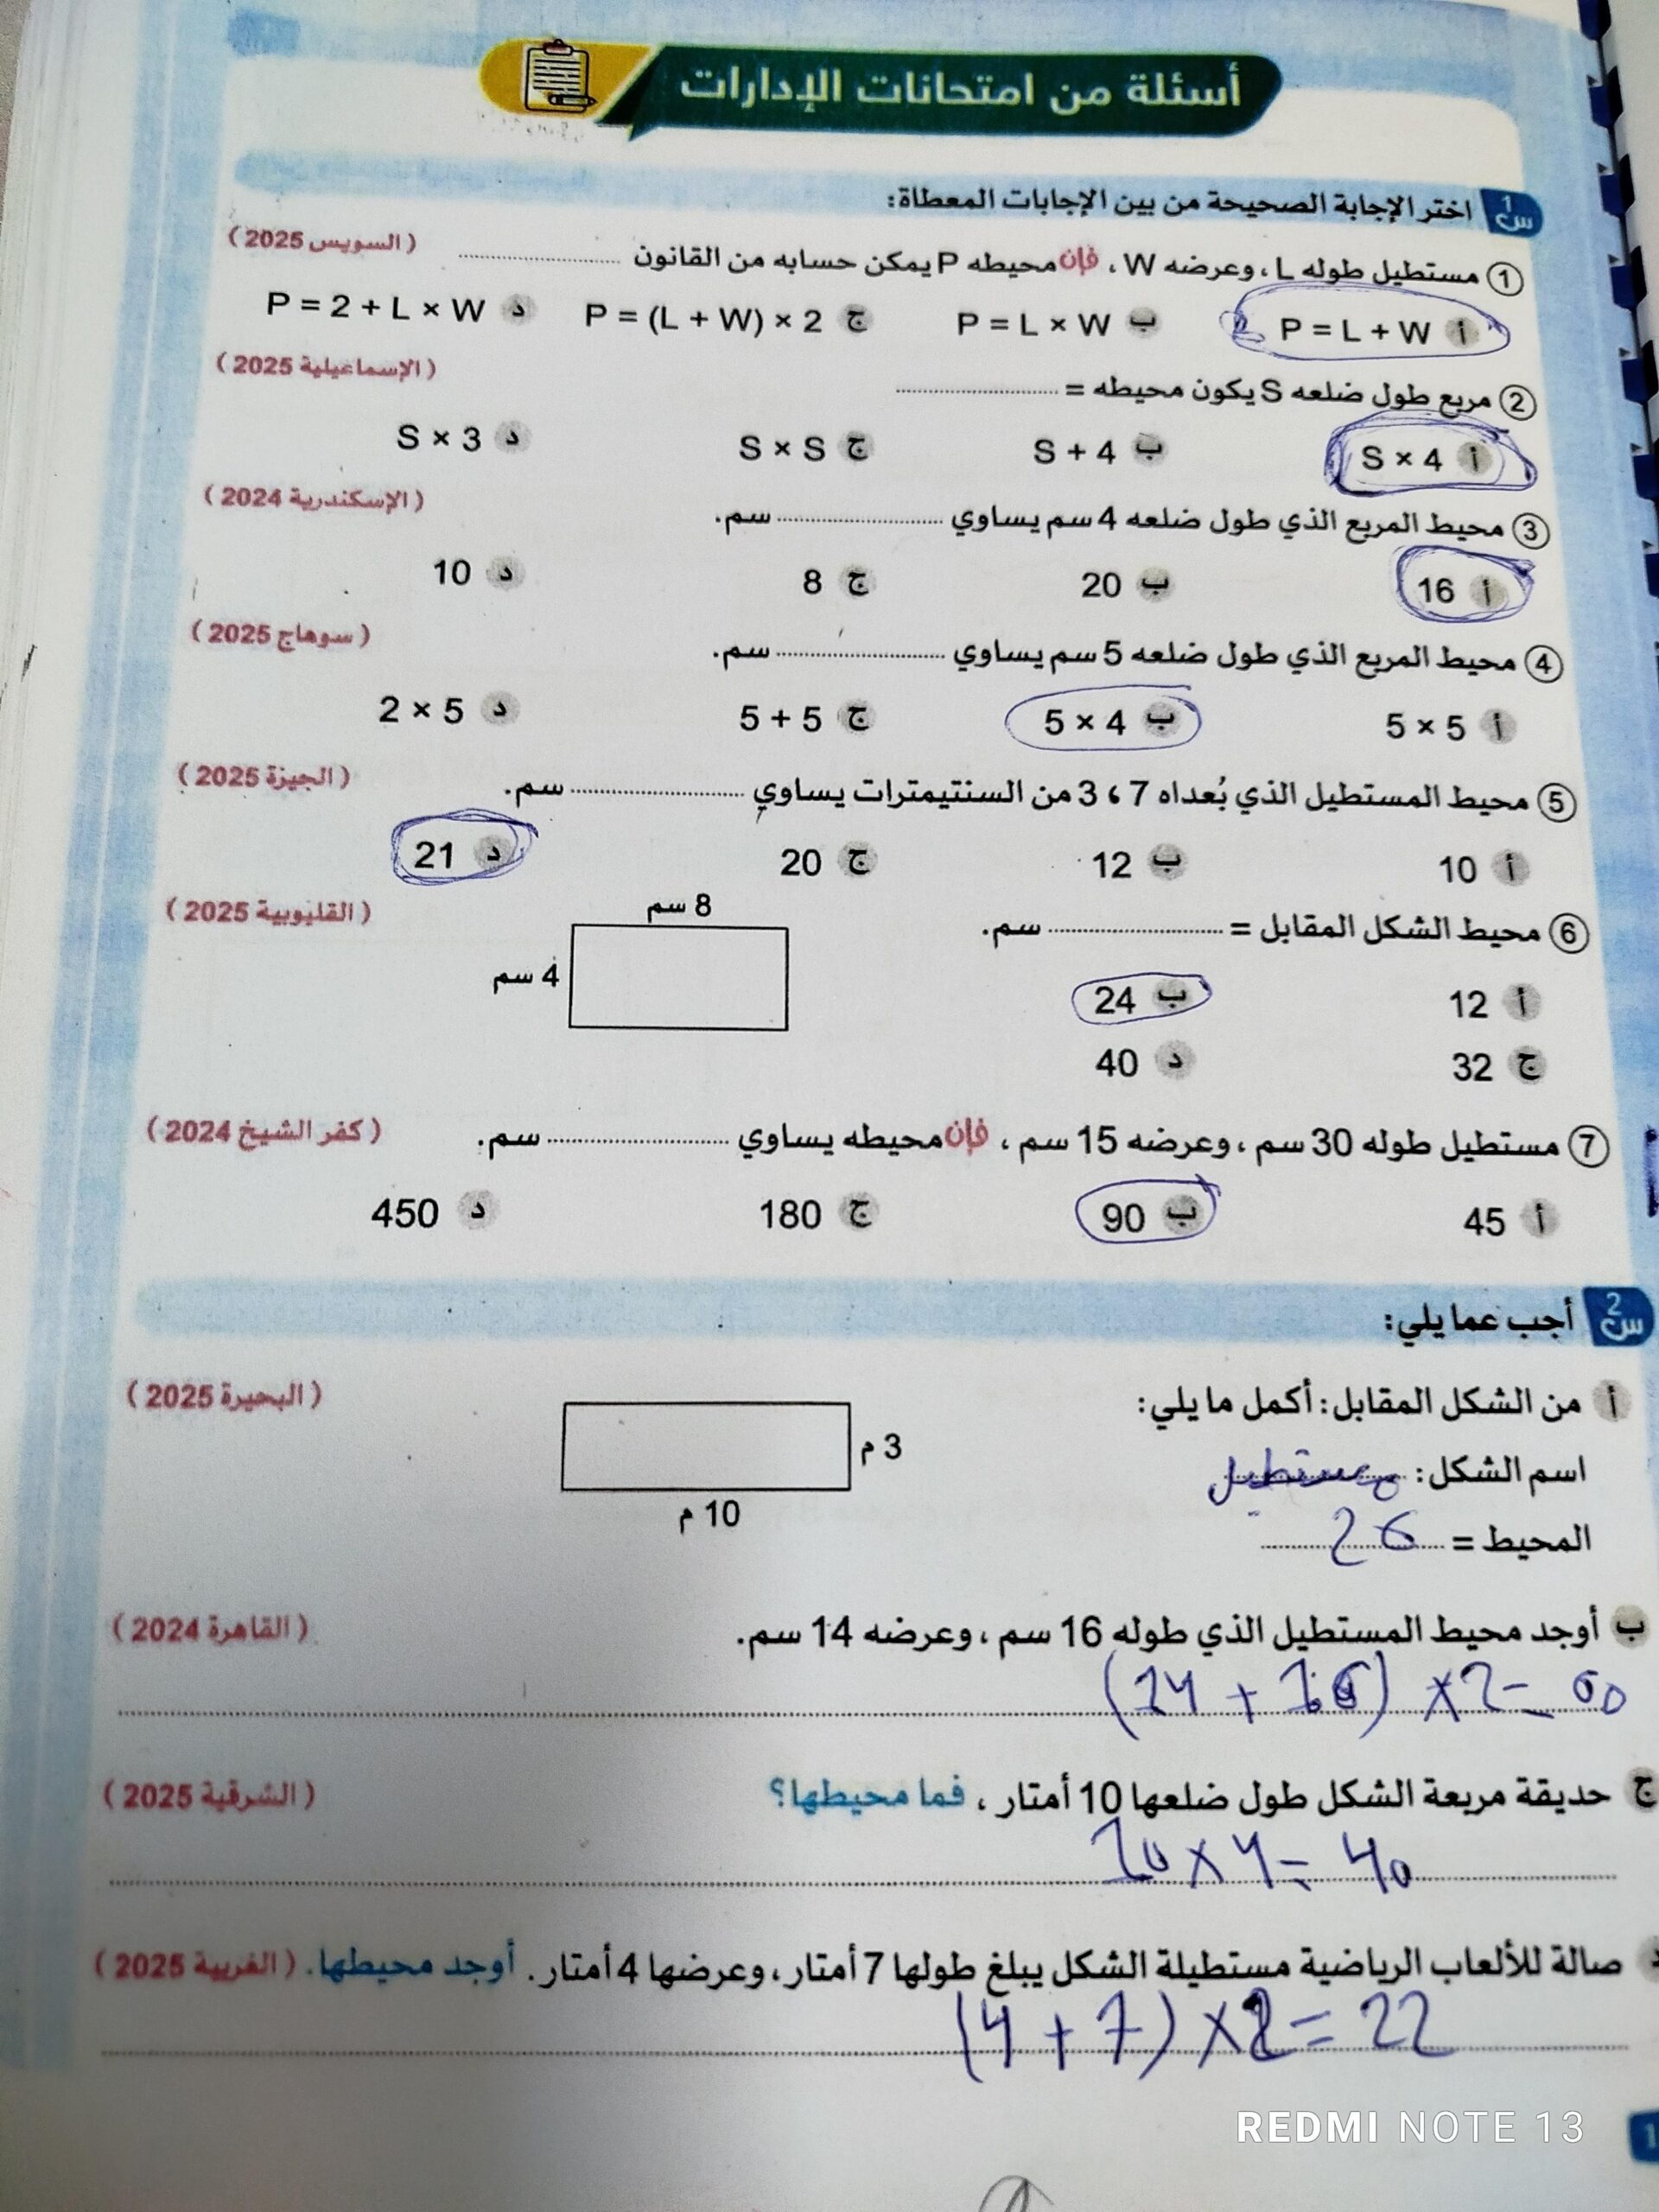 أسئلة من امتحانات الإدارات
س1 اختر الإجابة الصحيحة من بين الإجابات المعطاة:
1 مستطيل طوله L، وعرضه W، فإن محيطه P يمكن حسابه من القانون .................... (السويس 2025)
أ P = L + W ب P = L × W ج P = (L + W) × 2 د P = 2 + L × W
2 مربع طول ضلعه S يكون محيطه = .................... (الإسماعيلية 2025)
أ S × 4 ب S + 4 ج S × S د S × 3
3 محيط المربع الذي طول ضلعه 4 سم يساوي .................... سم. (الإسكندرية 2024)
أ 16 ب 20 ج 8 د 10
4 محيط المربع الذي طول ضلعه 5 سم يساوي .................... سم. (سوهاج 2025)
أ 5 × 5 ب 5 × 4 ج 5 + 5 د 2 × 5
5 محيط المستطيل الذي بُعداه 7 ، 3 من السنتيمترات يساوي .................... سم. (الجيزة 2025)
أ 10 ب 12 ج 20 د 21
6 محيط الشكل المقابل = .................... سم. (القليوبية 2025)
8 سم
4 سم
أ 12 ب 24
ج 32 د 40
7 مستطيل طوله 30 سم، وعرضه 15 سم، فإن محيطه يساوي .................... سم. (كفر الشيخ 2024)
أ 45 ب 90 ج 180 د 450
س2 أجب عما يلي:
أ من الشكل المقابل: أكمل ما يلي: (البحيرة 2025)
3 م
10 م
اسم الشكل: مستطيل
المحيط = 26
ب أوجد محيط المستطيل الذي طوله 16 سم، وعرضه 14 سم. (القاهرة 2024)
(14 + 16) × 2 = 60
ج حديقة مربعة الشكل طول ضلعها 10 أمتار، فما محيطها؟ (الشرقية 2025)
10 × 4 = 40
د صالة للألعاب الرياضية مستطيلة الشكل يبلغ طولها 7 أمتار، وعرضها 4 أمتار. أوجد محيطها. (الغربية 2025)
(4 + 7) × 2 = 22
REDMI NOTE 13